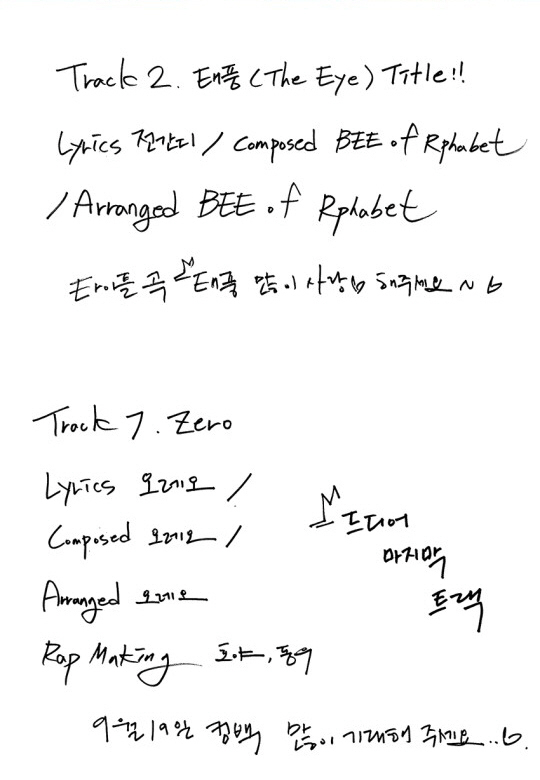 Track 2. 태풍 (The Eye) Title!!
Lyrics 전간디 / Composed BEE of Rphabet
/ Arranged BEE of Rphabet
타이틀 곡 태풍 많이 사랑♡ 해주세요~ 6
Track 7. Zero
Lyrics 오레오 /
Composed 오레오 /
Arranged 오레오
Rap Making 호야, 동우
드디어
마지막
트랙
9월 19일 컴백 많이 기대해 주세요..6